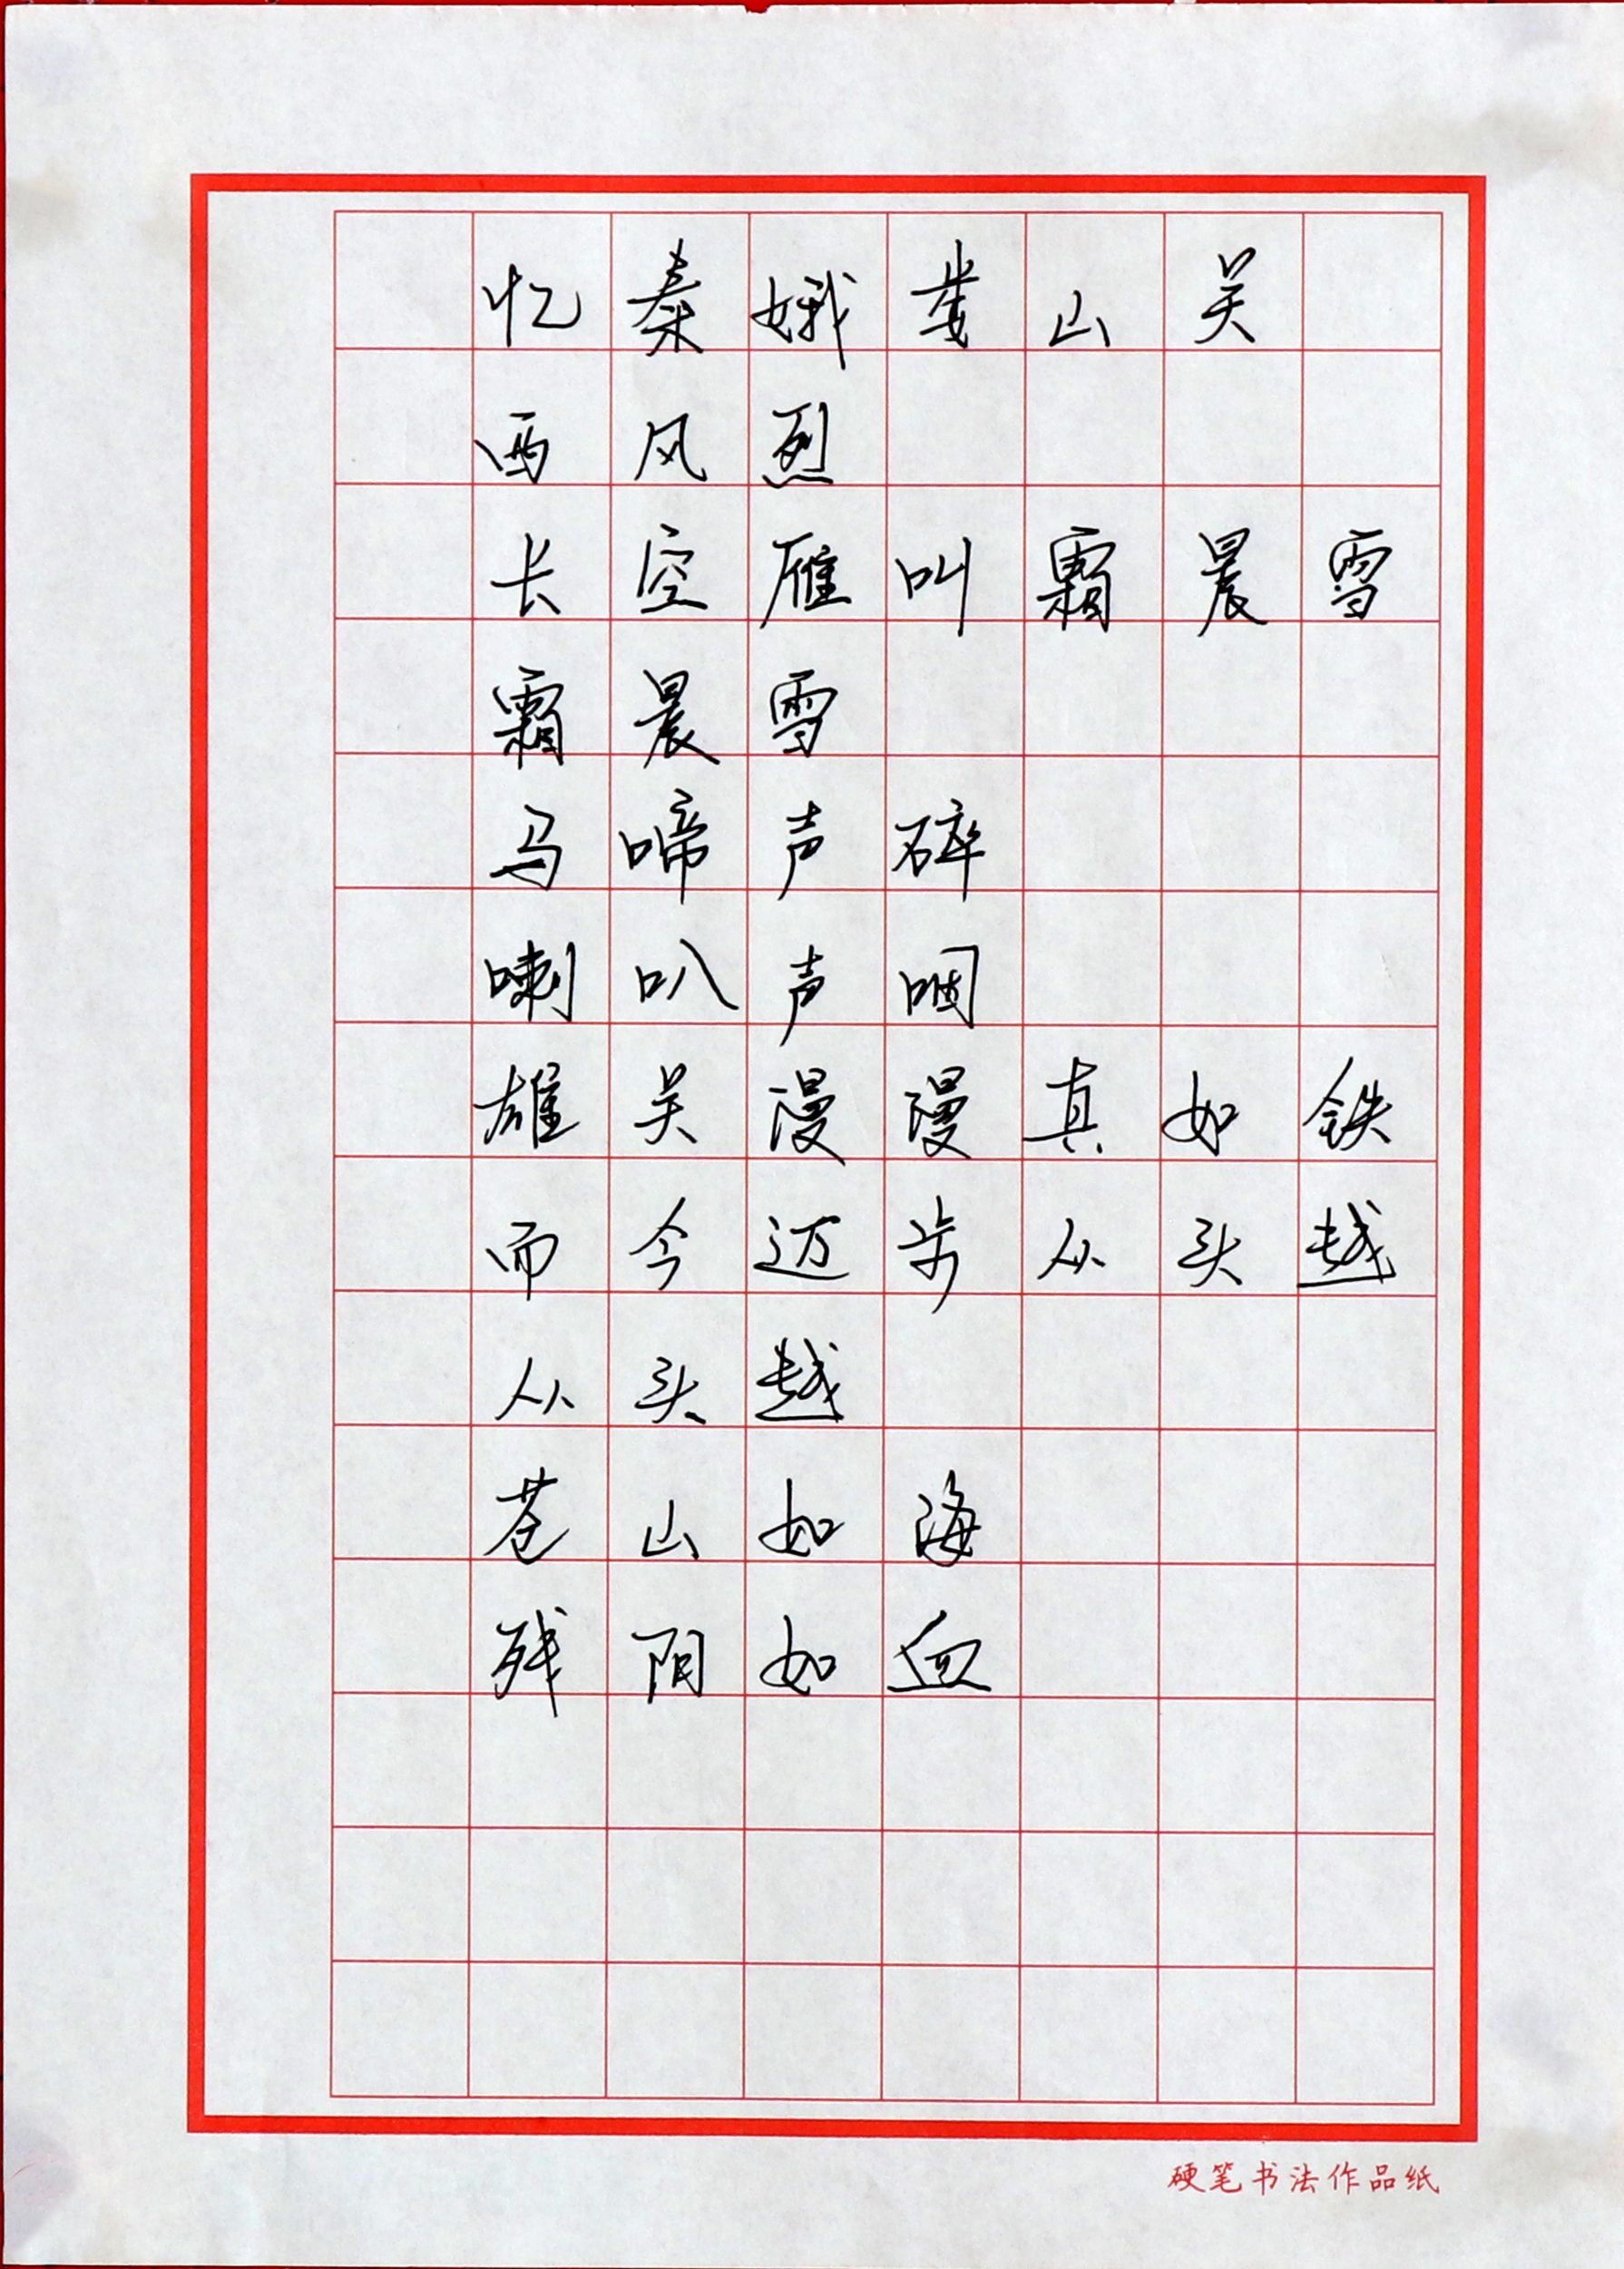 忆秦娥娄山关
西风烈
长空雁叫霜晨雪
霜晨雪
马啼声碎
喇叭声咽
雄关漫漫真如铁
而今迈步从头越
从头越
苍山如海
残阳如血
硬笔书法作品纸